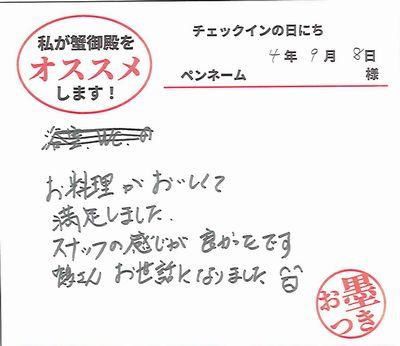 私が蟹御殿を
オススメ
します！
チェックインの日にち
4年 9月 8日
ペンネーム 様
浴室、WC、の
お料理が おいしくて
満足しました。
スタッフの感じが 良かったです
鶴さん お世話になりました
お墨つき